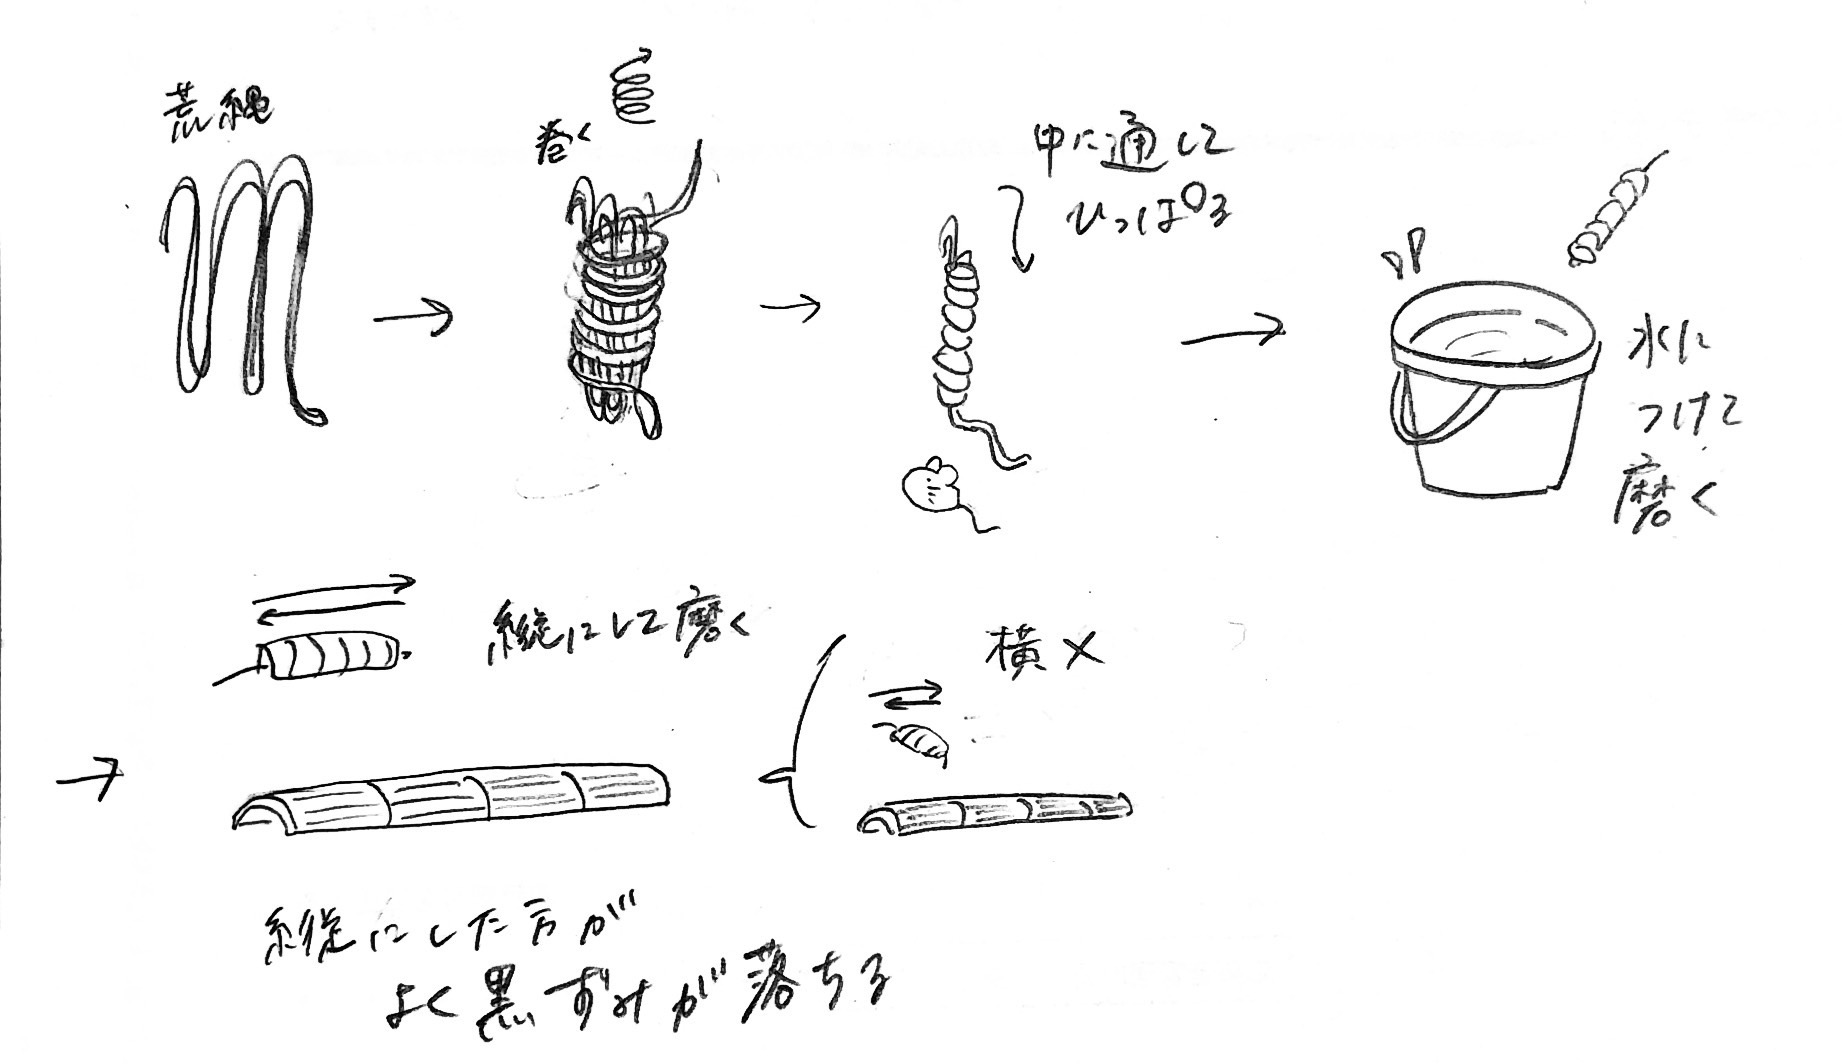 荒縄
巻く
中に通して
ひっぱる
水に
つけて
磨く
縦にして磨く
横×
縦にした方が
よく黒ずみが落ちる